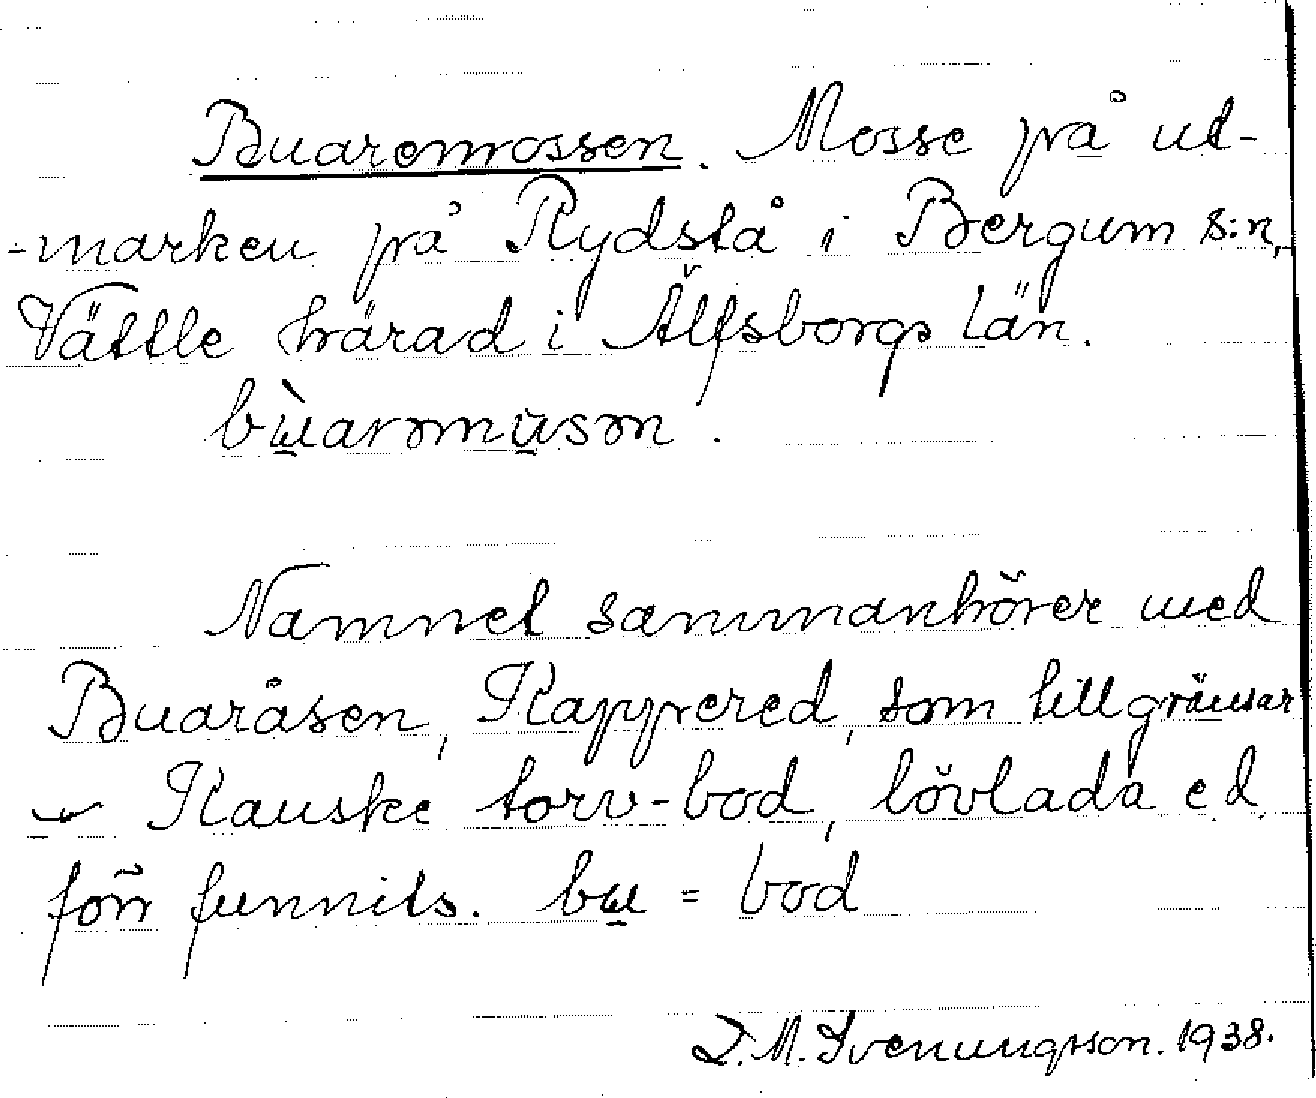 Buaremossen. Mosse på ut-
-marken på Rydstå i Bergum s:n,
Vättle härad i Älfsborgs län.
bùarəmusən.
Namnet sammanhörer med
Buaråsen, Rappered, som tillgränsar
Kanske torv-bod, lövlada e d
förr funnits. bu = bod
I. M. Svenungsson. 1938.